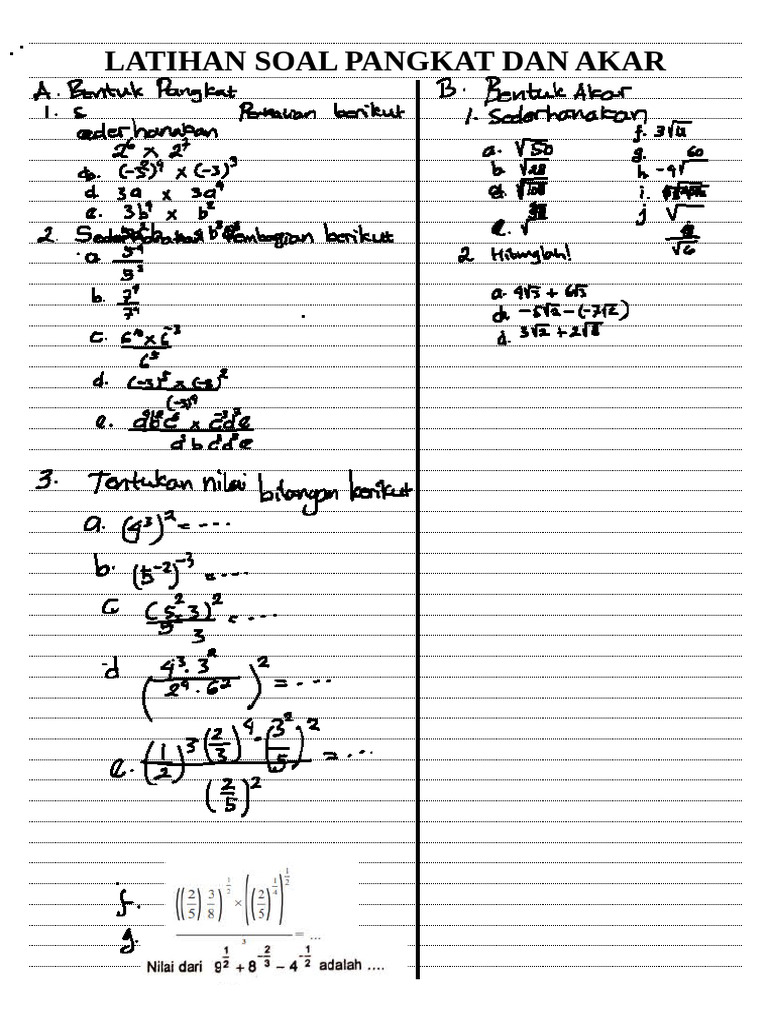 LATIHAN SOAL PANGKAT DAN AKAR
A. Bentuk Pangkat
1. s Perkalian berikut
ederhanakan
2⁶ x 2⁷
(-3²)⁴ x (-3)³
d. 3a x 3a⁴
e. 3b⁴ x b²
2. Sederhanakan Pembagian berikut
a. 5⁴
5³
b. 7⁹
7⁴
c. 6¹⁰ x 6⁻³
6⁵
d. (-3)⁵ x (-8)²
(-3)⁴
e.
3. Tentukan nilai bilangan berikut
a. (4³)² = ...
b. (5⁻²)⁻³ = ...
c (5².3)² = ...
5 3
d (4³ . 3²
2⁴ . 6²)² = ...
e. (1/2)³ (2/3)⁴ . (3²/5)² = ...
(2/5)²
f. ((2/5) 3/8)^(1/2) × ((2/5)^(1/4))^(1/2)
3 = ...
g.
Nilai dari 9^(1/2) + 8^(-2/3) – 4^(-1/2) adalah ....
B. Bentuk Akar
1. Sederhanakan
a. √50
b √28
e.
f. 3√
g. 60
h -4√
i.
j √
√6
2 Hitunglah!
a. 4√3 + 6√3
-5√2 - (-7√2)
d. 3√2 + 2√8